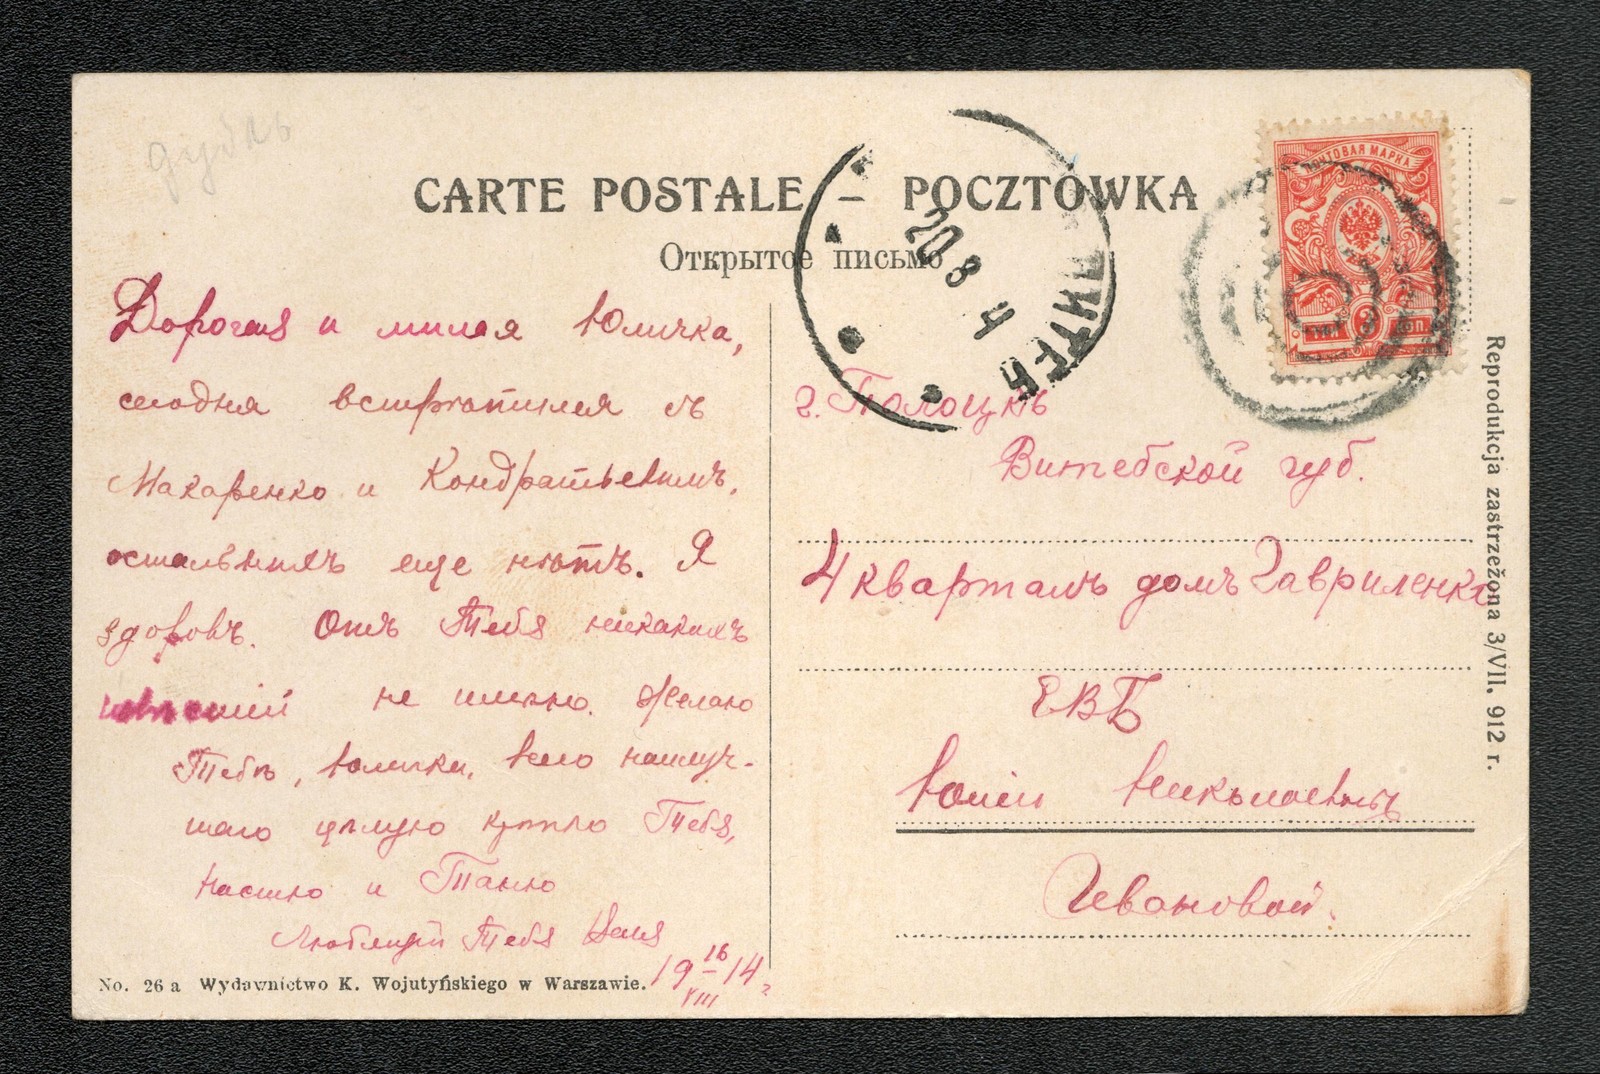 дубль
CARTE POSTALE – POCZTÓWKA
Открытое письмо
ПОЧТОВАЯ МАРКА
3 КОП.
20 8
4
Дорогая и милая Юличка,
сегодня встрѣтился съ
Макаренко и Кондратьевымъ,
остальныхъ еще нѣтъ. Я
здоровъ. Отъ Тебя никакихъ
не имѣю. Желаю
Тебѣ, Юличка, всего наилуч-
шаго цѣлую крѣпко Тебя,
Настю и Таню
Любящій Тебя Ваня
19 16/VIII 14 г
г. Полоцкъ
Витебской губ.
4 кварталъ домъ Гавриленко
ЕВБ
Юліи Николаевнѣ
Ивановой.
No. 26 a Wydawnictwo K. Wojutyńskiego w Warszawie.
Reprodukcja zastrzeżona 3/VII. 912 r.